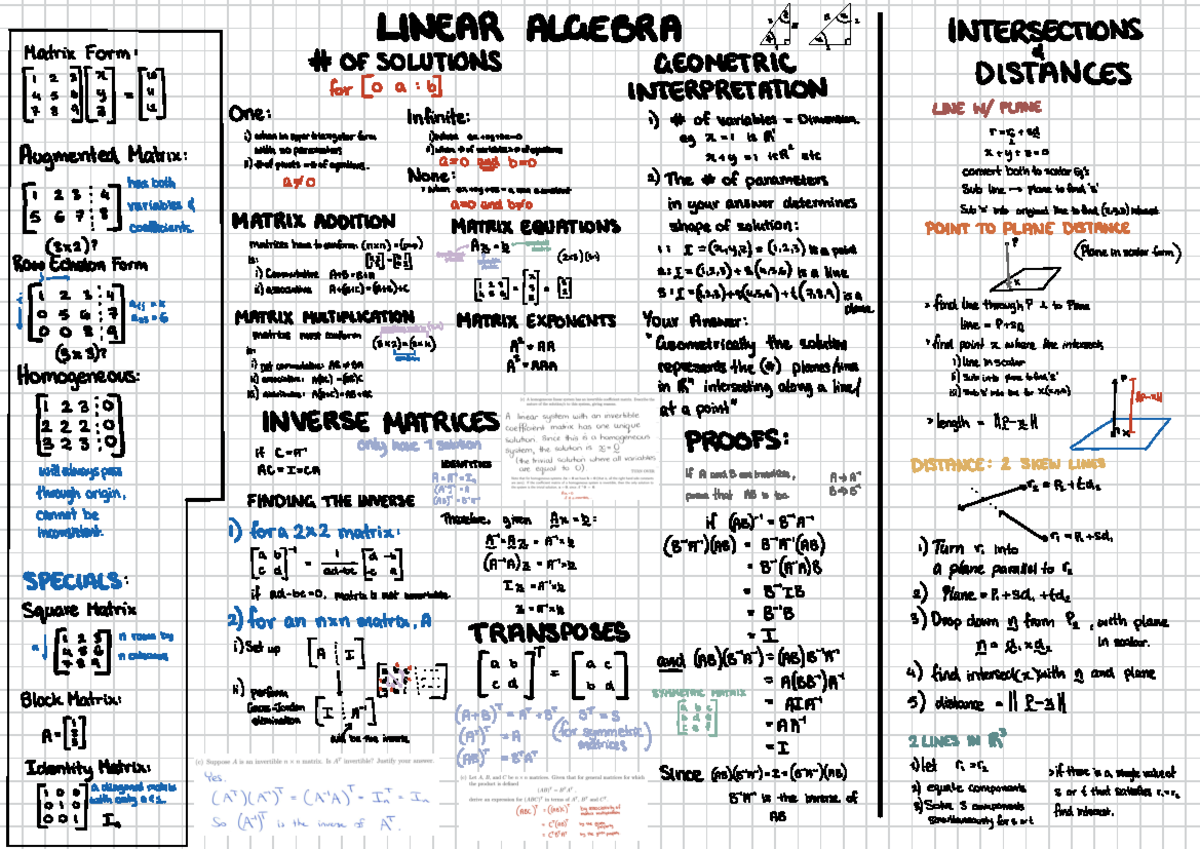 LINEAR ALGEBRA
Matrix Form:
[1 2 3] [x]
[4 5 6] [y] =
[7 8 9] [z]
Augmented Matrix:
[1 2 3 : 4]
[5 6 7 : 8]
has both
variables &
coefficients.
(3x2)?
Row Echelon Form
[1 2 3 : 4]
[0 5 6 : 7]
[0 0 8 : 9]
(3x3)?
Homogeneous:
[1 2 3 : 0]
[2 2 2 : 0]
[3 2 3 : 0]
will always pass
through origin,
cannot be
inconsistent.
SPECIALS:
Square Matrix
[1 2 3]
[4 5 6]
[7 8 9]
n rows by
n columns
Block Matrix:
A =
Identity Matrix:
[1 0 0]
[0 1 0]
[0 0 1]
A diagonal matrix
with only
In
# OF SOLUTIONS
for [0 a : b]
One:
i) when in upper triangular form
with no parameters
ii) # of pivots = # of equations.
a≠0
Infinite:
a=0 and b=0
None:
a=0 and b≠0
MATRIX ADDITION
matrices have to conform
is:
i) Commutative A+B=B+A
ii) associative A+(B+C)=(A+B)+C
MATRIX MULTIPLICATION
matrices must conform
i) not commutative AB≠BA
MATRIX EQUATIONS
Ax = b
MATRIX EXPONENTS
A² = AA
A³ = AAA
INVERSE MATRICES
only have 1 solution
if C=A⁻¹
AC = I = CA
IDENTITIES
(A⁻¹)⁻¹ = A
(AB)⁻¹ = B⁻¹A⁻¹
A linear system with an invertible
coefficient matrix has one unique
solution. Since this is a homogeneous
system, the solution is x=0
(the trivial solution where all variables
are equal to 0).
FINDING THE INVERSE
1) for a 2x2 matrix:
[a b]⁻¹ = 1/(ad-bc) [d -b]
[c d] [-c a]
if ad-bc=0, matrix is not invertible.
2) for an nxn matrix, A
i) Set up
[A | I]
ii) perform
Gauss-Jordan
elimination
[I | A⁻¹]
will be the inverse
Therefore, given Ax=b:
A⁻¹Ax = A⁻¹b
(A⁻¹A)x = A⁻¹b
Ix = A⁻¹b
x = A⁻¹b
TRANSPOSES
[a b]ᵀ = [a c]
[c d] [b d]
(A+B)ᵀ = Aᵀ+Bᵀ
(Aᵀ)ᵀ = A
(AB)ᵀ = BᵀAᵀ
Sᵀ = S
(for symmetric
matrices)
(c) Suppose A is an invertible n × n matrix. Is Aᵀ invertible? Justify your answer.
Yes.
(Aᵀ)(A⁻¹)ᵀ = (A⁻¹A)ᵀ = Inᵀ = In
So (A⁻¹)ᵀ is the inverse of Aᵀ.
(c) Let A, B, and C be n × n matrices. Given that for general matrices for which
the product is defined
(AB)ᵀ = BᵀAᵀ,
derive an expression for (ABC)ᵀ in terms of Aᵀ, Bᵀ and Cᵀ.
(ABC)ᵀ = ((AB)C)ᵀ
= Cᵀ(AB)ᵀ
= CᵀBᵀAᵀ
GEOMETRIC
INTERPRETATION
1) # of variables = Dimension.
eg x=1 is R¹
x+y=1 is R² etc
2) The # of parameters
in your answer determines
shape of solution:
1: r=(x,y,z)=(1,2,3) is a point
2: r=(1,2,3)+s(4,5,6) is a line
3: r=(1,2,3)+s(4,5,6)+t(7,8,9) is a
plane
Your Answer:
"Geometrically the solution
represents the (#) planes/lines
in Rⁿ intersecting along a line/
at a point"
PROOFS:
If A and B are invertible,
prove that AB is too
A→A⁻¹
B→B⁻¹
if (AB)⁻¹ = B⁻¹A⁻¹
(B⁻¹A⁻¹)(AB) = B⁻¹A⁻¹(AB)
= B⁻¹(A⁻¹A)B
= B⁻¹IB
= B⁻¹B
= I
and (AB)(B⁻¹A⁻¹) = (AB)B⁻¹A⁻¹
= A(BB⁻¹)A⁻¹
= AIA⁻¹
= AA⁻¹
= I
SYMMETRIC MATRIX
[a b c]
[b d e]
[c e f]
Since (AB)(B⁻¹A⁻¹)=I=(B⁻¹A⁻¹)(AB)
B⁻¹A⁻¹ is the inverse of
AB
INTERSECTIONS
&
DISTANCES
LINE W/ PLANE
x+y+z=0
convert both to scalar Eq's
Sub line → plane to find 's'
Sub 's' into original line to find (x,y,z)
POINT TO PLANE DISTANCE
(Plane in scalar form)
P
x
> find line through P ⊥ to Plane
line = P+sn
> find point x where the intersect
i) line in scalar
ii) Sub into plane to find 's'
> length = ||P-x||
||P-x||
DISTANCE: 2 SKEW LINES
r₂ = P₂+td₂
r₁ = P₁+sd₁
1) Turn r₁ into
a plane parallel to r₂
2) Plane = P₁+sd₁+td₂
3) Drop down n from P₂, with plane
in scalar.
n = d₁×d₂
4) find intersect(x) with n and plane
5) distance = ||P-x||
2 LINES IN R³
1) let r₁=r₂
2) equate components
3) Solve 3 components
simultaneously for s & t
> if there is a single value of
s or t that satisfies r₁=r₂
find intersect.